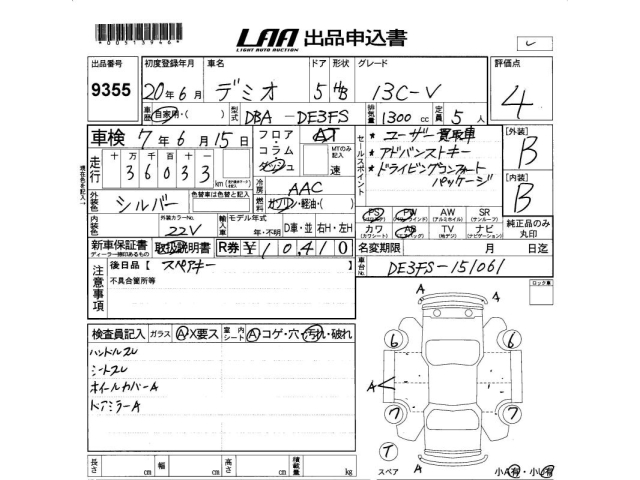 *005139464*
LAA 出品申込書
LIGHT AUTO AUCTION
出品番号 9355
初度登録年月 20年6月
車名 デミオ
ドア 5 形状 HB
グレード 13C-V
評価点 4
車歴 自家用・( )
型式 DBA - DE3FS
排気量 1300 cc
定員 5 人
車検 7年6月15日
フロア・コラム・ダッシュ
AT
MTのみ記入 速
セールスポイント
* ユーザー買取車
* アドバンストキー
* ドライビングコンフォートパッケージ
[外装] B
[内装] B
走行 十万 千百十
3 6 0 3 3 km
現在名を記入
外装色 シルバー
色替車は色替と記入
冷房 AAC
燃料 ガソリン・軽油・( )
PS PW AW SR
(パワステ) (パワーウインド) (アルミホイル) (サンルーフ)
カワ AB TV ナビ
(カワシート) (エアバック) (地デジ) (ナビゲーション)
純正品のみ丸印
内装色
外装カラーNo. 22V
輸入車 モデル年式 年・不明
D車・並 右H・左H
新車保証書
ディーラー捺印あるもの
取扱説明書
R券 ¥10,410
名変期限 月 日迄
注意事項
後日品 [ スペアキー
不具合箇所等
車台No. DE3FS-151061
ロック車
検査員記入 ガラス A X要ス
室内シート A コゲ・穴・汚れ・破れ
ハンドルスレ
シートスレ
ホイールカバーA
ドアミラーA
A A
6 6
A
7 7
T
スペア A
小A有・小U有
長さ cm 幅 cm 高さ cm 積載量 kg